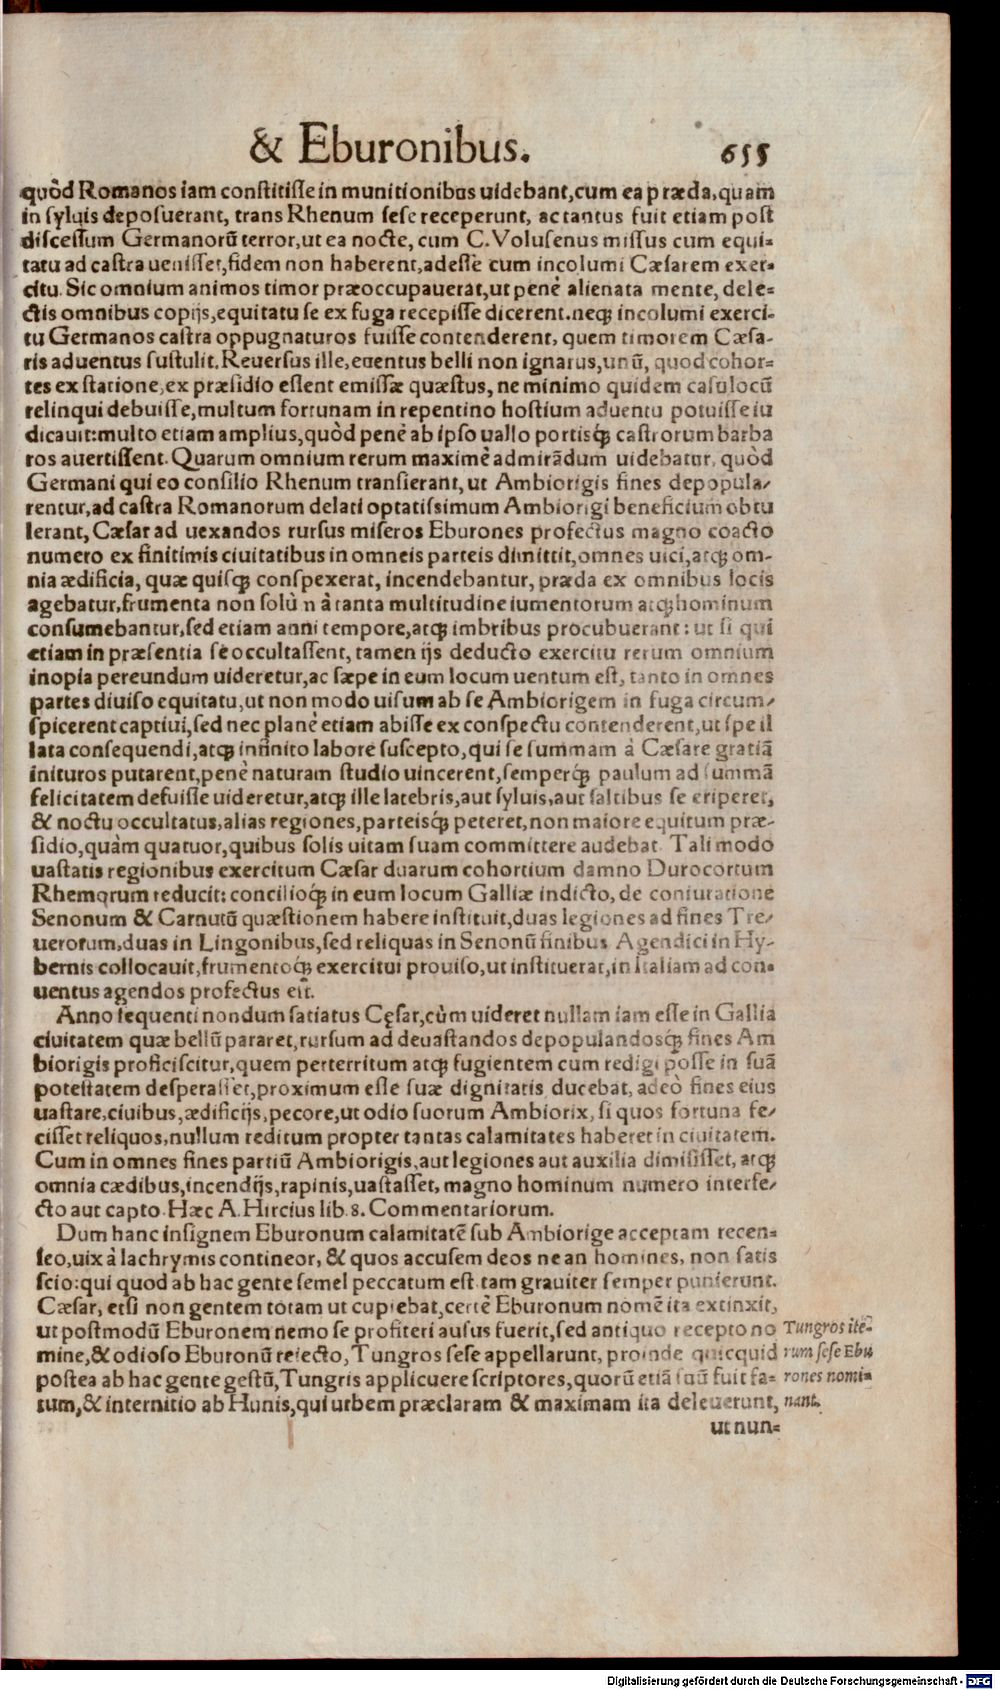 & Eburonibus. 655
quòd Romanos iam constitisse in munitionibus uidebant, cum ea præda, quam
in syluis deposuerant, trans Rhenum sese receperunt, ac tantus fuit etiam post
discessum Germanorū terror, ut ea nocte, cum C. Volusenus missus cum equi=
tatu ad castra uenisset, fidem non haberent, adesse cum incolumi Cæsarem exer=
citu. Sic omnium animos timor præoccupauerat, ut penè alienata mente, dele=
ctis omnibus copijs, equitatu se ex fuga recepisse dicerent. neqꝫ incolumi exerci=
tu Germanos castra oppugnaturos fuisse contenderent, quem timorem Cæsa-
ris aduentus sustulit. Reuersus ille, euentus belli non ignarus, unū, quod cohor=
tes ex statione, ex præsidio essent emissæ quæstus, ne minimo quidem casu locū
relinqui debuisse, multum fortunam in repentino hostium aduentu potuisse iu
dicauit: multo etiam amplius, quòd penè ab ipso uallo portisqꝫ́ castrorum barba
ros auertissent. Quarum omnium rerum maximè admirādum uidebatur, quòd
Germani qui eo consilio Rhenum transierant, ut Ambiorigis fines depopula/
rentur, ad castra Romanorum delati optatissimum Ambiorigi beneficium obtu
lerant, Cæsar ad uexandos rursus miseros Eburones profectus magno coacto
numero ex finitimis ciuitatibus in omneis parteis dimittit, omnes uici, atqꝫ om-
nia ædificia, quæ quisqꝫ conspexerat, incendebantur, præda ex omnibus locis
agebatur, frumenta non solùm à tanta multitudine iumentorum atqꝫ hominum
consumebantur, sed etiam anni tempore, atqꝫ imbribus procubuerant: ut si qui
etiam in præsentia se occultassent, tamen ijs deducto exercitu rerum omnium
inopia pereundum uideretur, ac sæpe in eum locum uentum est, tanto in omnes
partes diuiso equitatu, ut non modo uisum ab se Ambiorigem in fuga circum/
spicerent captiui, sed nec planè etiam abisse ex conspectu contenderent, ut spe il
lata consequendi, atqꝫ infinito labore suscepto, qui se summam à Cæsare gratiā
inituros putarent, penè naturam studio uincerent, semperqꝫ́ paulum ad summā
felicitatem defuisse uideretur, atqꝫ ille latebris, aut syluis, aut saltibus se eriperet,
& noctu occultatus, alias regiones, parteisqꝫ́ peteret, non maiore equitum præ-
sidio, quàm quatuor, quibus solis uitam suam committere audebat. Tali modo
uastatis regionibus exercitum Cæsar duarum cohortium damno Durocortum
Rhemorum reducit: concilioqꝫ́ in eum locum Galliæ indicto, de coniuratione
Senonum & Carnutū quæstionem habere instituit, duas legiones ad fines Tre/
uerorum, duas in Lingonibus, sed reliquas in Senonū finibus Agendici in Hy-
bernis collocauit, frumentoqꝫ́ exercitui prouiso, ut instituerat, in Italiam ad con=
uentus agendos profectus est.
Anno sequenti nondum satiatus Cęsar, cùm uideret nullam iam esse in Gallia
ciuitatem quæ bellū pararet, rursum ad deuastandos depopulandosqꝫ́ fines Am
biorigis proficiscitur, quem perterritum atqꝫ fugientem cum redigi posse in suā
potestatem desperasset, proximum esse suæ dignitatis ducebat, adeò fines eius
uastare, ciuibus, ædificijs, pecore, ut odio suorum Ambiorix, si quos fortuna fe/
cisset reliquos, nullum reditum propter tantas calamitates haberet in ciuitatem.
Cum in omnes fines partiū Ambiorigis, aut legiones aut auxilia dimisisset, atqꝫ
omnia cædibus, incendijs, rapinis, uastasset, magno hominum numero interfe/
cto aut capto. Hæc A. Hircius lib. 8. Commentariorum.
Dum hanc insignem Eburonum calamitatē sub Ambiorige acceptam recen=
seo, uix à lachrymis contineor, & quos accusem deos ne an homines, non satis
scio: qui quod ab hac gente semel peccatum est tam grauiter semper punierunt.
Cæsar, etsi non gentem totam ut cupiebat, certè Eburonum nomē ita extinxit,
ut postmodū Eburonem nemo se profiteri ausus fuerit, sed antiquo recepto no
mine, & odioso Eburonū reiecto, Tungros sese appellarunt, proinde quicquid
postea ab hac gente gestū, Tungris applicuere scriptores, quorū etiā suū fuit fa=
tum, & internitio ab Hunis, qui urbem præclaram & maximam ita deleuerunt,
ut nun=
Tungros ite=
rum sese Ebu
rones nomi=
nant.
Digitalisierung gefördert durch die Deutsche Forschungsgemeinschaft - DFG